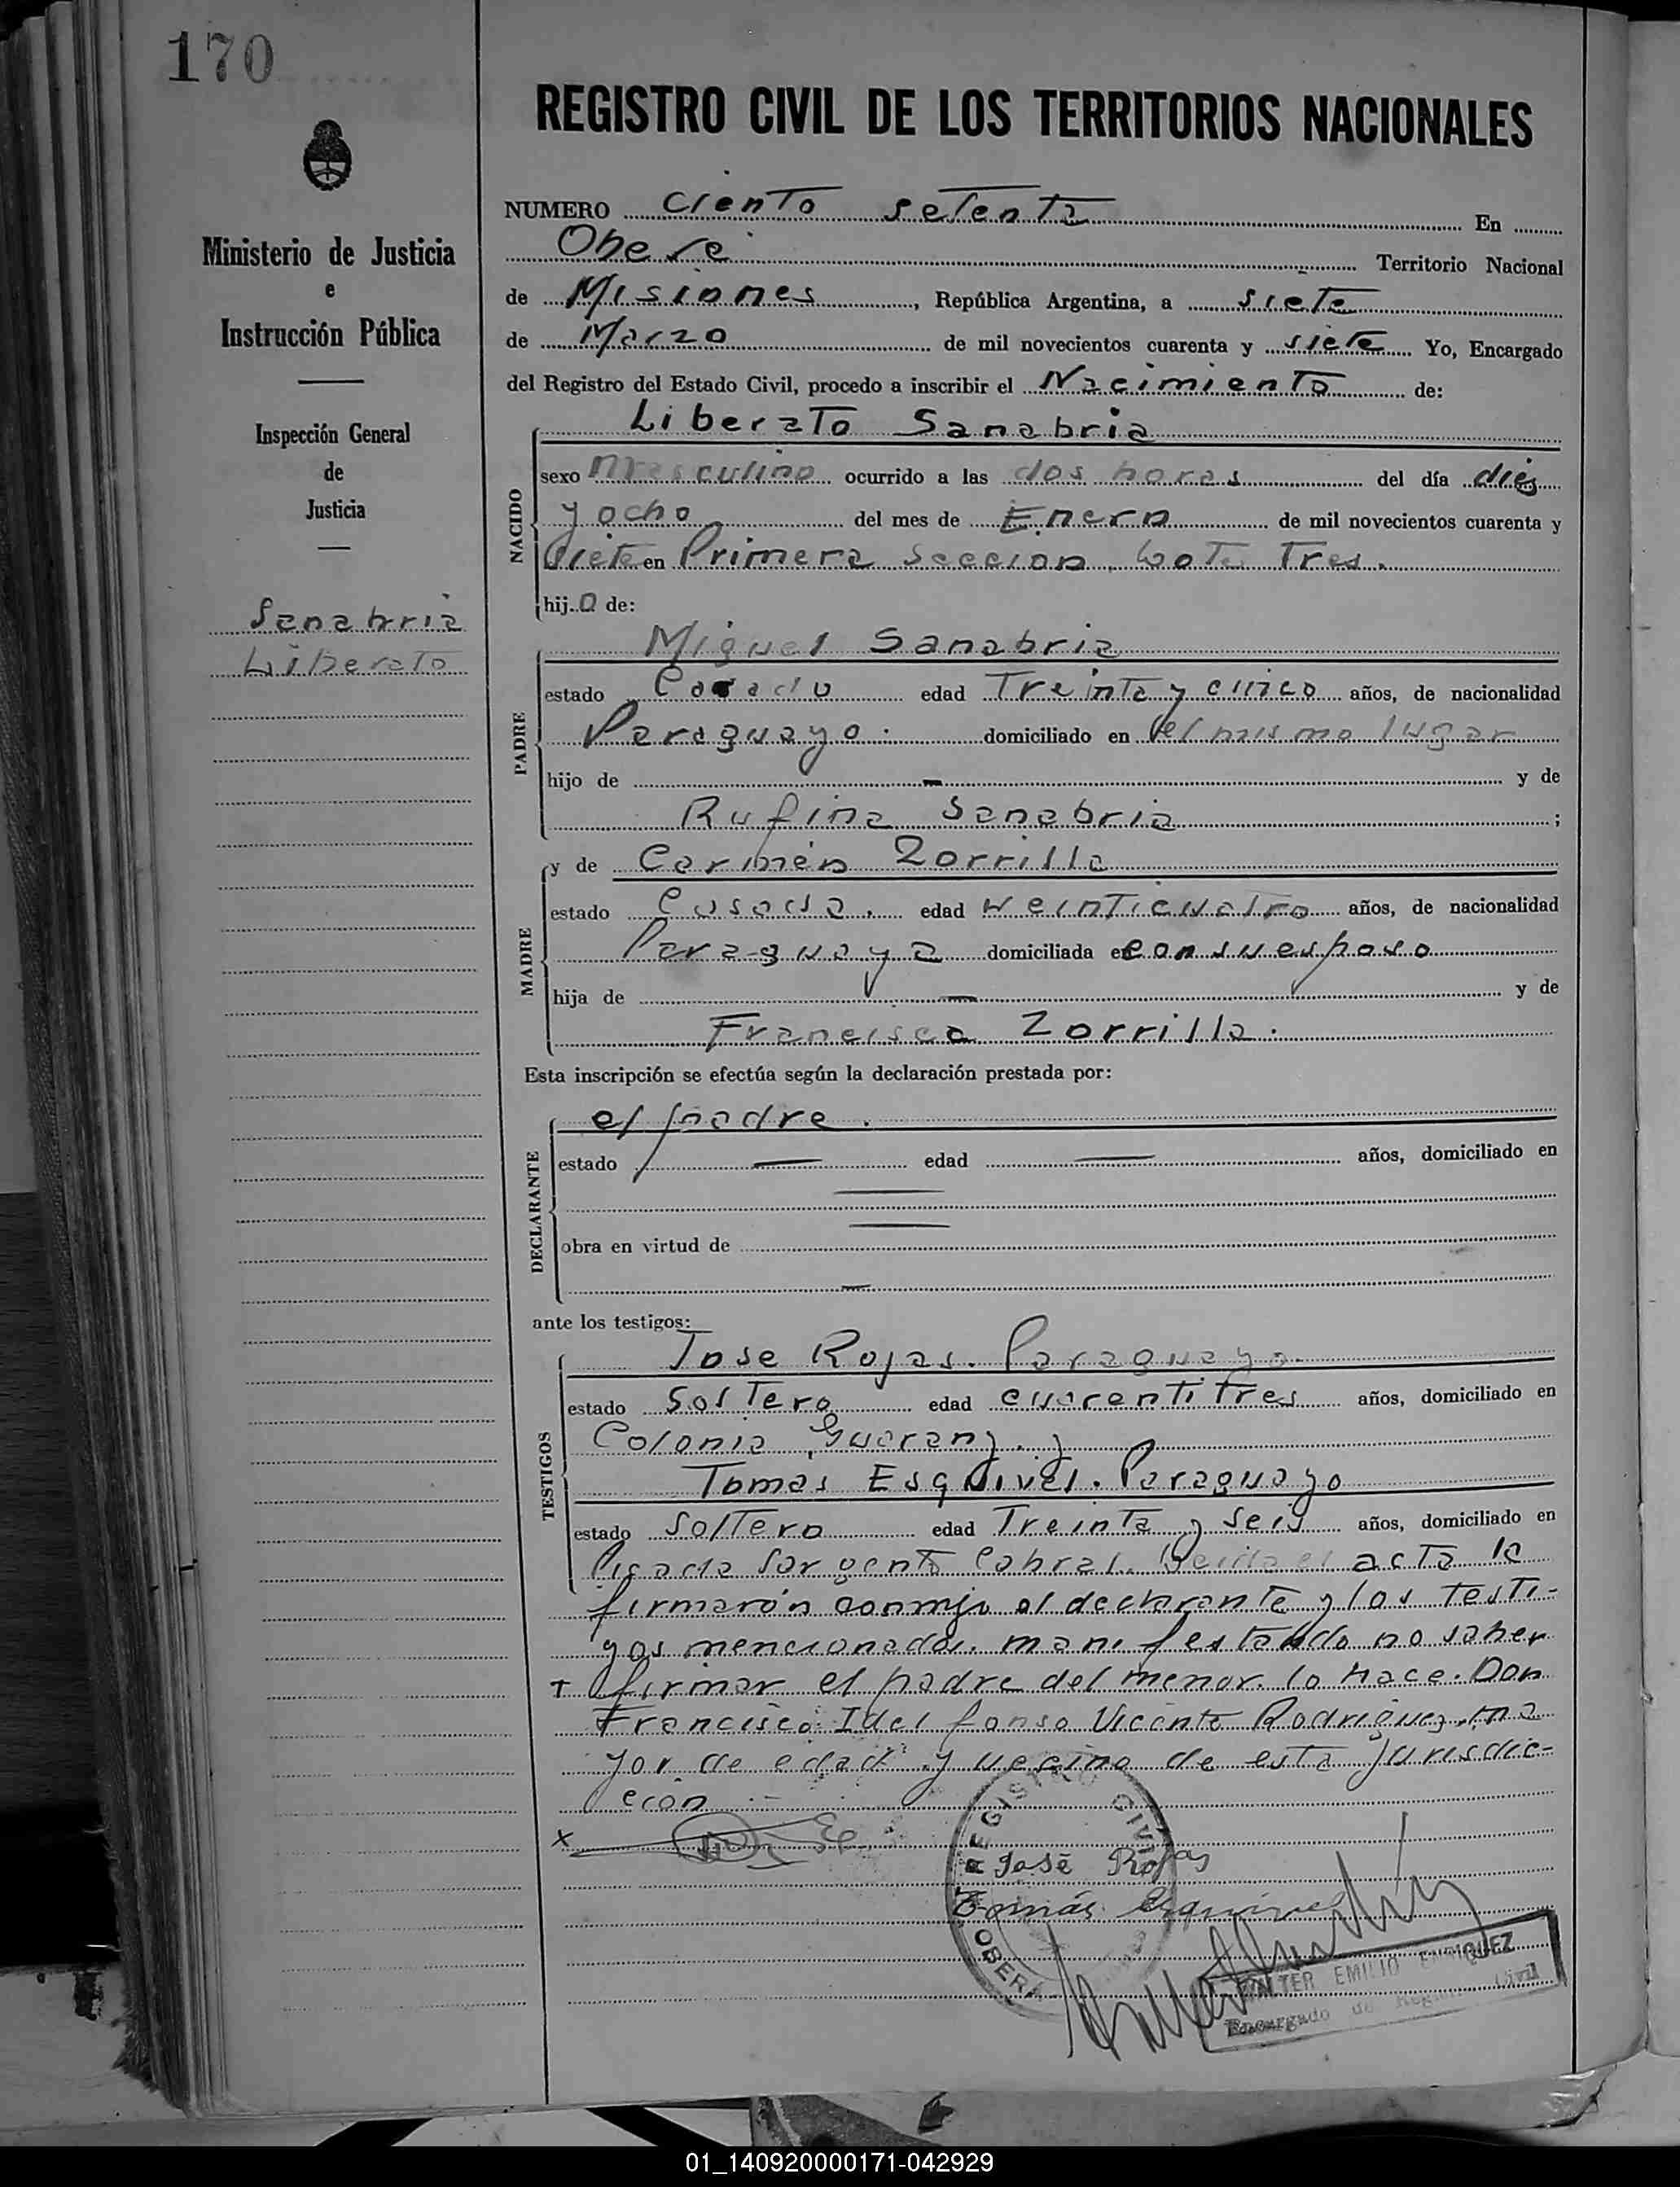 170
REGISTRO CIVIL DE LOS TERRITORIOS NACIONALES
Ministerio de Justicia
e
Instrucción Pública
Inspección General
de
Justicia
Sanabria
Liberato
NUMERO ciento setenta En
Oberá Territorio Nacional
de Misiones, República Argentina, a siete
de Marzo de mil novecientos cuarenta y siete Yo, Encargado
del Registro del Estado Civil, procedo a inscribir el Nacimiento de:
NACIDO
Liberato Sanabria
sexo Masculino ocurrido a las dos horas del día dies
y ocho del mes de Enero de mil novecientos cuarenta y
Siete en Primera Seccion. Lote Tres.
hijo de:
PADRE
Miguel Sanabria
estado Casado edad Treinta y cinco años, de nacionalidad
Paraguayo. domiciliado en el mismo lugar
hijo de — y de
Rufina Sanabria;
MADRE
y de Carmen Zorrilla
estado Casada. edad veinticuatro años, de nacionalidad
Paraguaya domiciliada en con su esposo
hija de — y de
Francisca Zorrilla.
Esta inscripción se efectúa según la declaración prestada por:
DECLARANTE
el padre.
estado — edad — años, domiciliado en
obra en virtud de
—
ante los testigos:
TESTIGOS
Jose Rojas. Paraguayo.
estado Soltero edad cuarentitres años, domiciliado en
Colonia Guarany. y
Tomas Esquivel. Paraguayo
estado Soltero edad Treinta y Seis años, domiciliado en
Picada Sargento Cabral. Leida el acta la
firmarón conmigo el declarante y los testi-
gos mencionados. manifestando no saber
+ firmar el padre del menor. lo hace. Don
Francisco Idelfonso Vicente Rodriguez. ma
yor de edad y vecino de esta jurisdic-
ción
x
REGISTRO CIVIL
OBERÁ
José Rojas
Tomás Esquivel
WALTER EMILIO ENRIQUEZ
Encargado de Registro Civil
01_140920000171-042929